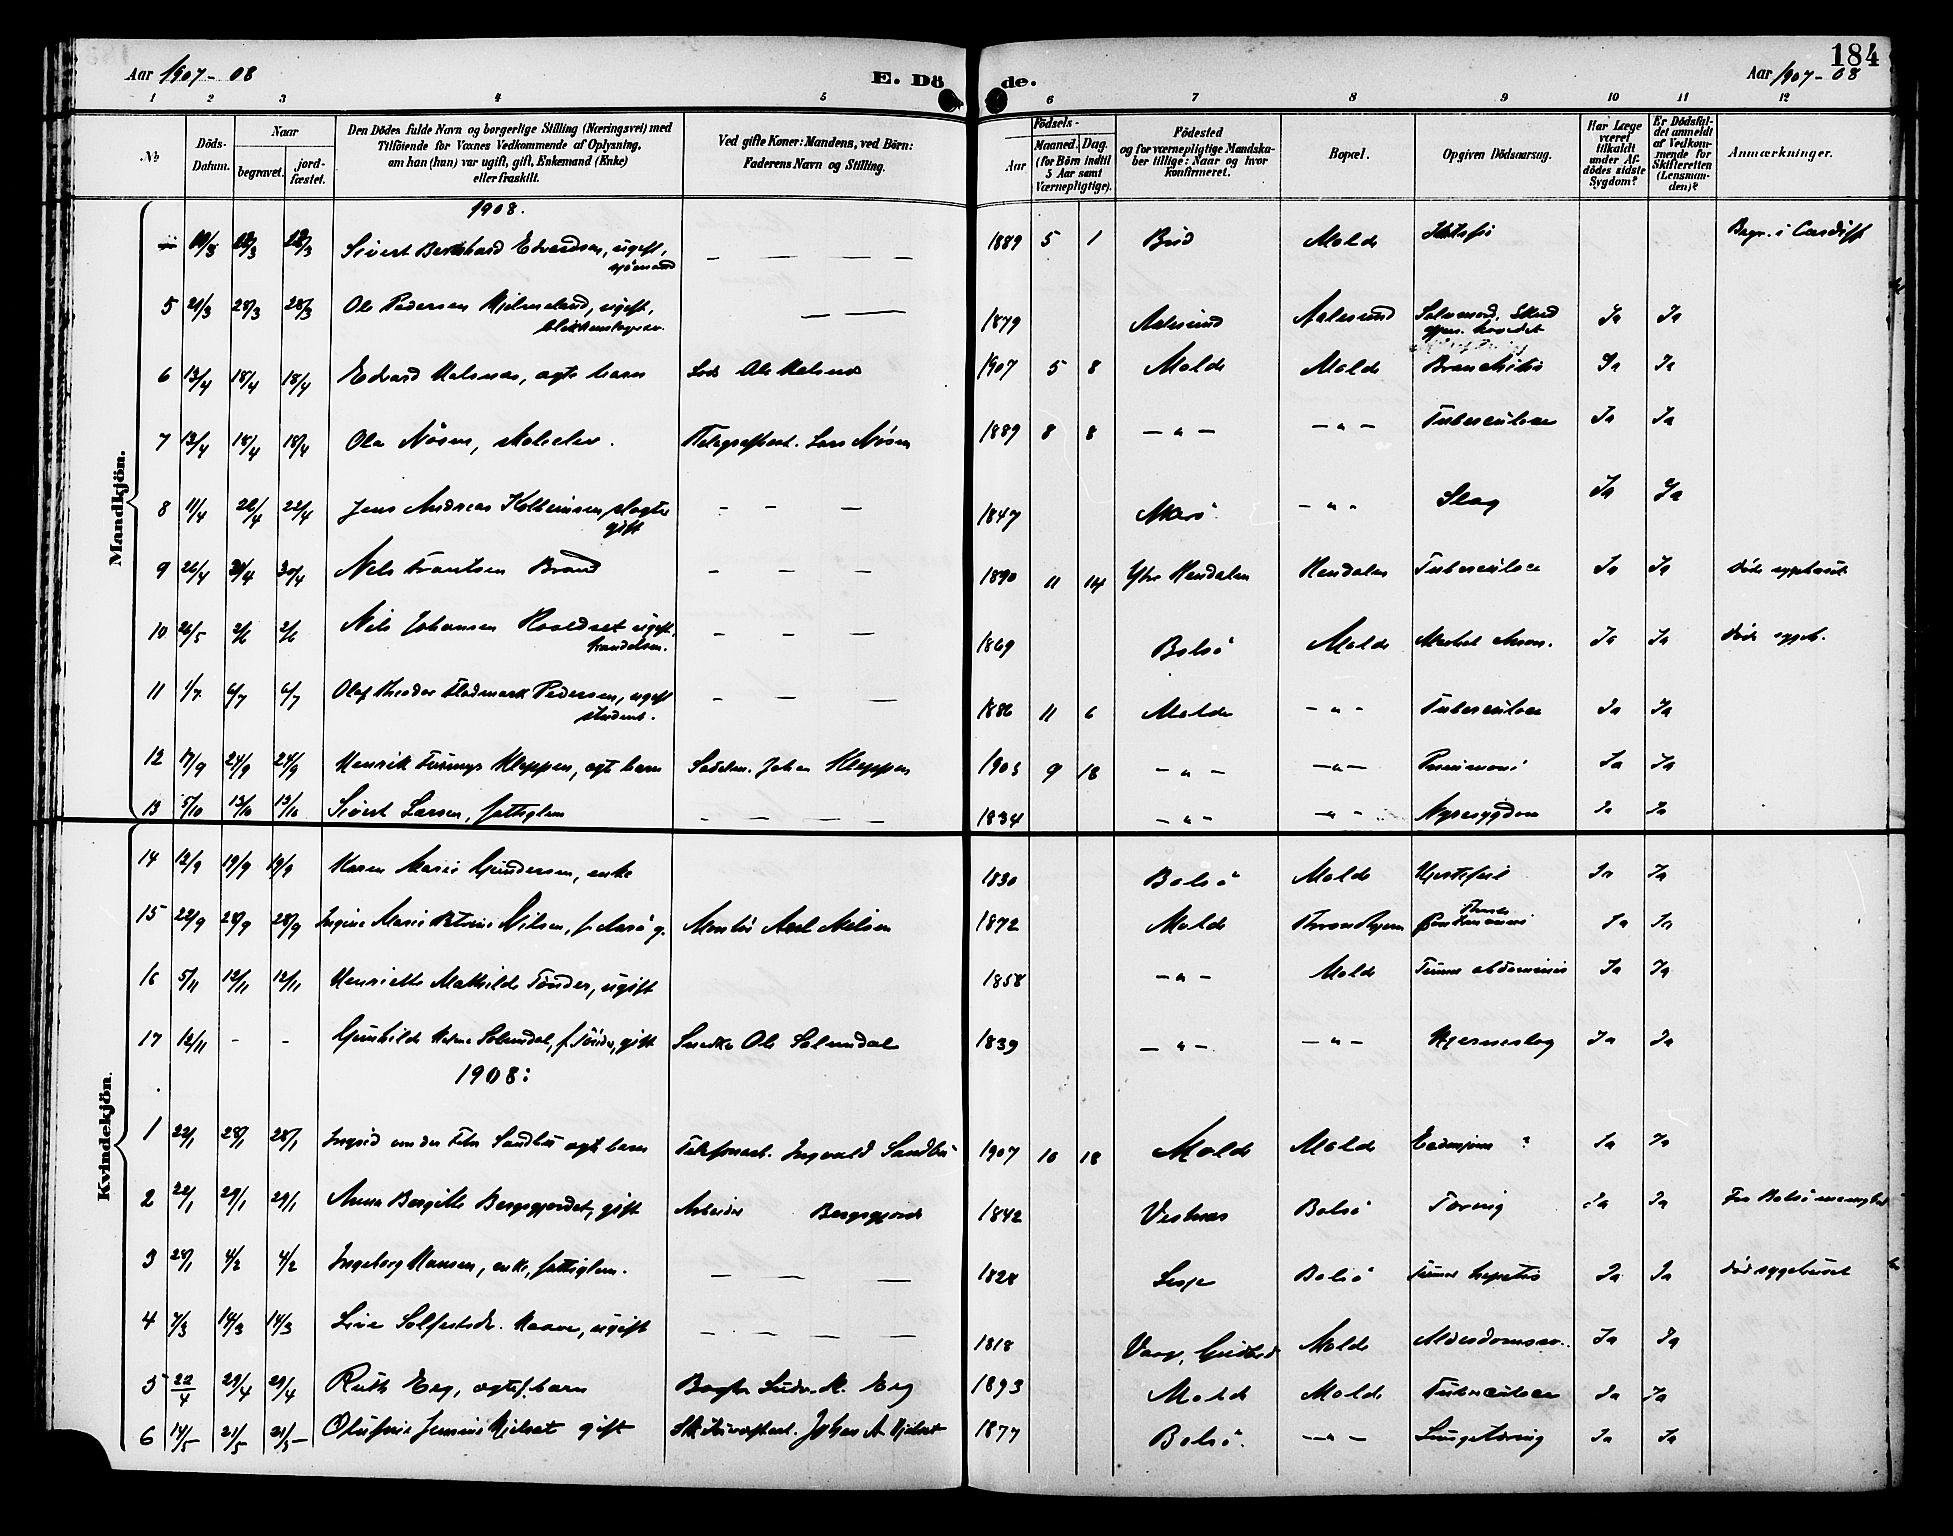 184
Aar 1907-08
E. Döde.
Aar 1907-08
1 2 3 4 5 6 7 8 9 10 11 12
No
Döds-Datum.
Naar
begravet.
jord-fæstet.
Den Dödes fulde Navn og borgerlige Stilling (Næringsvei) med
Tilföiende for Voxnes Vedkommende af Oplysning,
om han (hun) var ugift, gift, Enkemand (Enke)
eller fraskilt.
Ved gifte Koner: Mandens, ved Börn:
Faderens Navn og Stilling.
Födsels-
Aar
Maaned. Dag.
(for Börn indtil
5 Aar samt
Værnepligtige).
Födested
og for værnepligtige Mandska-
ber tillige: Naar og hvor
konfirmeret.
Bopæl.
Opgiven Dödsaarsag.
Har Læge
været
tilkaldt
under Af-
dödes sidste
Sygdom?
Er Dödsfal-
det anmeldt
af Vedkom-
mende for
Skifteretten
(Lensman-
den)?
Anmærkninger.
Mandkjön.
1908.
Sivert Bernhard Edvardsen, ugift, sjömand — — — — 1889 5 1 Bud Molde Begr. i Cardiff
5 21/3 28/3 28/3 Ole Pedersen Hjelmeland, ugift, 1879 Aalesund Aalesund Ja Ja
6 13/4 18/4 18/4 Edvard Halsnæs, ægte barn Lods Ole Halsnæs 1907 5 8 Molde Molde Bronchitis Ja Ja
7 13/4 18/4 18/4 Ola Nösen, skoleelev. Telegrafbest. Lars Nösen 1889 8 8 — " — — " — Tuberculose Ja Ja
8 11/4 22/4 22/4 Jens Andreas Kolbeinsen, slagter gift — — — 1847 — " — Slag Ja Ja
9 26/4 30/4 30/4 Nils Frantsen Brand — — — 1890 11 14 Ytre Rendalen Rendalen Tuberculose Ja Ja Död sygehuset
10 26/5 2/6 2/6 Nils Johansen Roaldset ugift, handelsm. — — — 1869 Bolsö Molde Ja Ja Död sygeh.
11 1/7 6/7 6/7 Olaf Theodor Flodmark Pedersen, ugift student. — — — 1886 11 6 Molde — " — Tuberculose Ja Ja
12 17/9 24/9 24/9 Henrik Kleppen, ægte barn Sadelm. Johan Kleppen 1905 9 18 — " — — " — Pneumoni Ja Ja
13 5/10 13/10 13/10 Sivert Larsen, fattiglem — — — — 1834 — " — — " — Nyresygdom Ja Ja
Kvindekjön.
14 12/9 19/9 19/9 Karen Marie Gundersen, enke 1830 Bolsö Molde Hjertefeil Ja Ja
15 22/9 28/9 28/9 Ingine Marie Petrine Nilsen, f. g. Montör Axel Nilsen 1872 Molde Throndhjem Ja Ja
16 5/11 12/11 12/11 Henriette Mathilde Tönder, ugift 1858 — " — Molde Tumor abdominis Ja Ja
17 12/11 - - Gunhilde Solemdal, f. Tönder, gift Snedker Ole Solemdal 1839 — " — — " — Hjerneslag Ja Ja
1908:
1 22/1 28/1 28/1 Ingrid Sandbu ægte barn Telefonbest. Ingvald Sandbu 1907 10 18 Molde Molde ? Ja Ja
2 22/1 29/1 29/1 Anna Bergitte Bergsgjerdet, gift Arbeider Bergsgjerde 1842 Vestnes Bolsö Tæring Ja Ja Fra Bolsö menighed
3 28/1 4/2 4/2 Ingeborg Hansen, enke, fattiglem. — — — 1828 Lesje Bolsö Tumor hepatis Ja Ja död sygehuset
4 7/3 14/3 14/3 Haave, ugift — — — — 1818 Vaage, Gudbrd Molde Alderdomssv. Ja Ja
5 22/4 29/4 29/4 Ruth Eeg, ægtef. barn Bagter Ludv. M. Eeg 1893 Molde Molde Tuberculose Ja Ja
6 14/5 21/5 21/5 Olufine Jensine Hjelset gift Johan A. Hjelset 1877 Bolsö. — " — Lungetæring Ja Ja